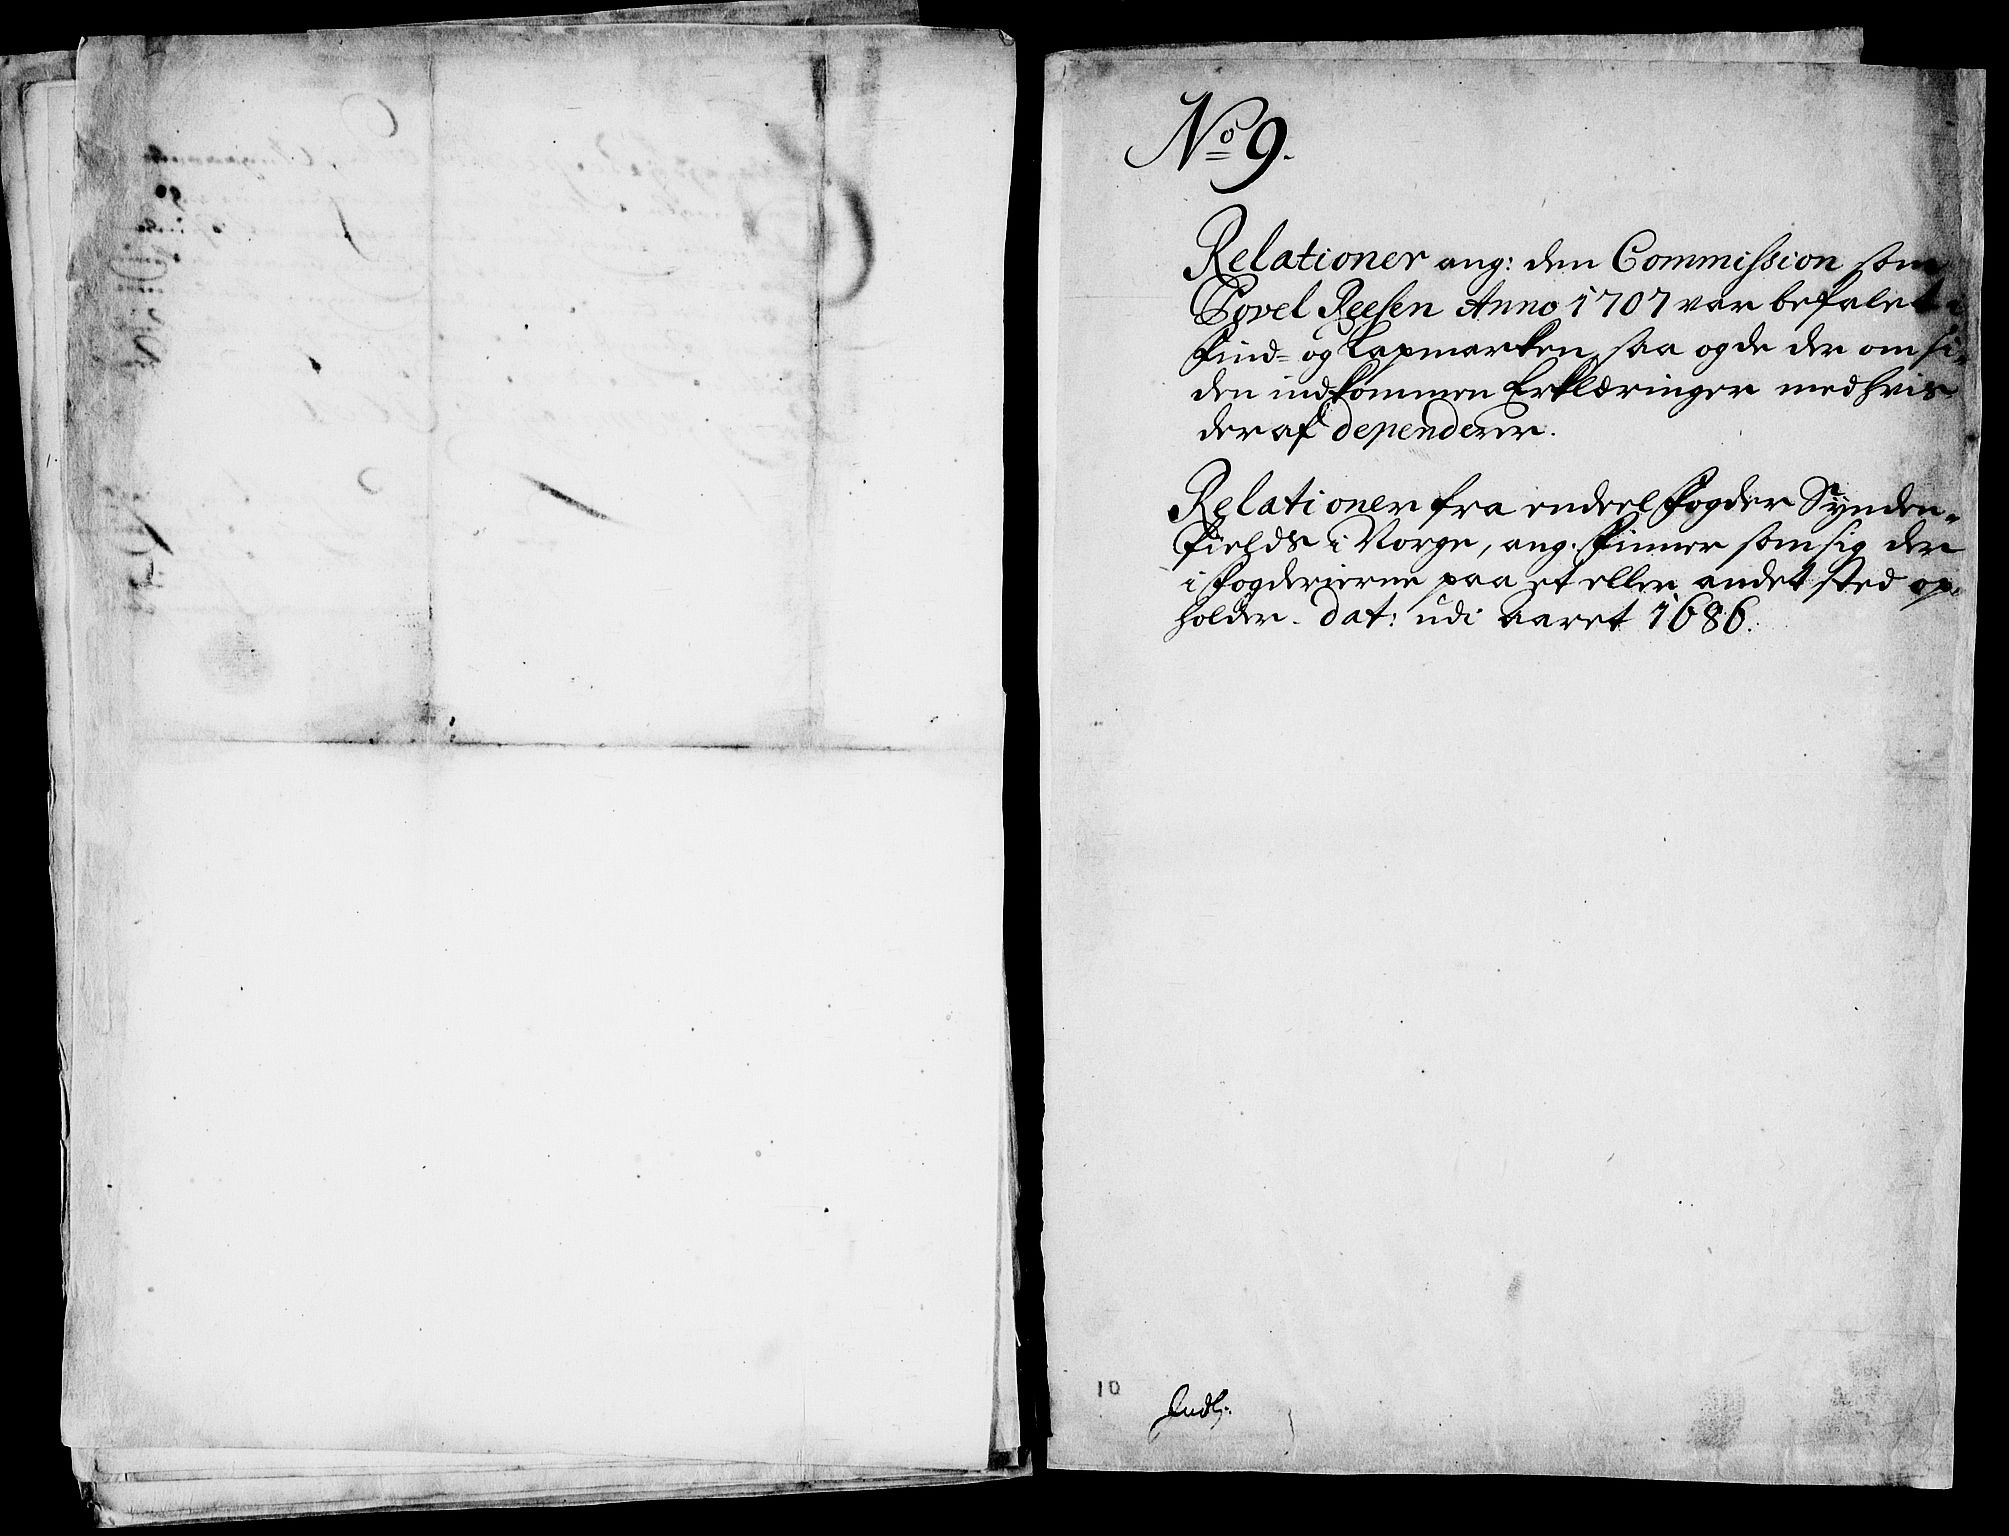 No 9.
Relationer ang: den Commission som
Povel Reesen Anno 1707 var befalet i
Find= og Lapmarken, saa og de der om si=
den indkommen Erklæringer med hvis
deraf dependerer.
Relationer fra endeel Fogder Synden=
fields i Norge, ang. Finner som sig der
i Fogderierne paa et eller andet sted op=
holder. dat: udi Aaret 1686.
10